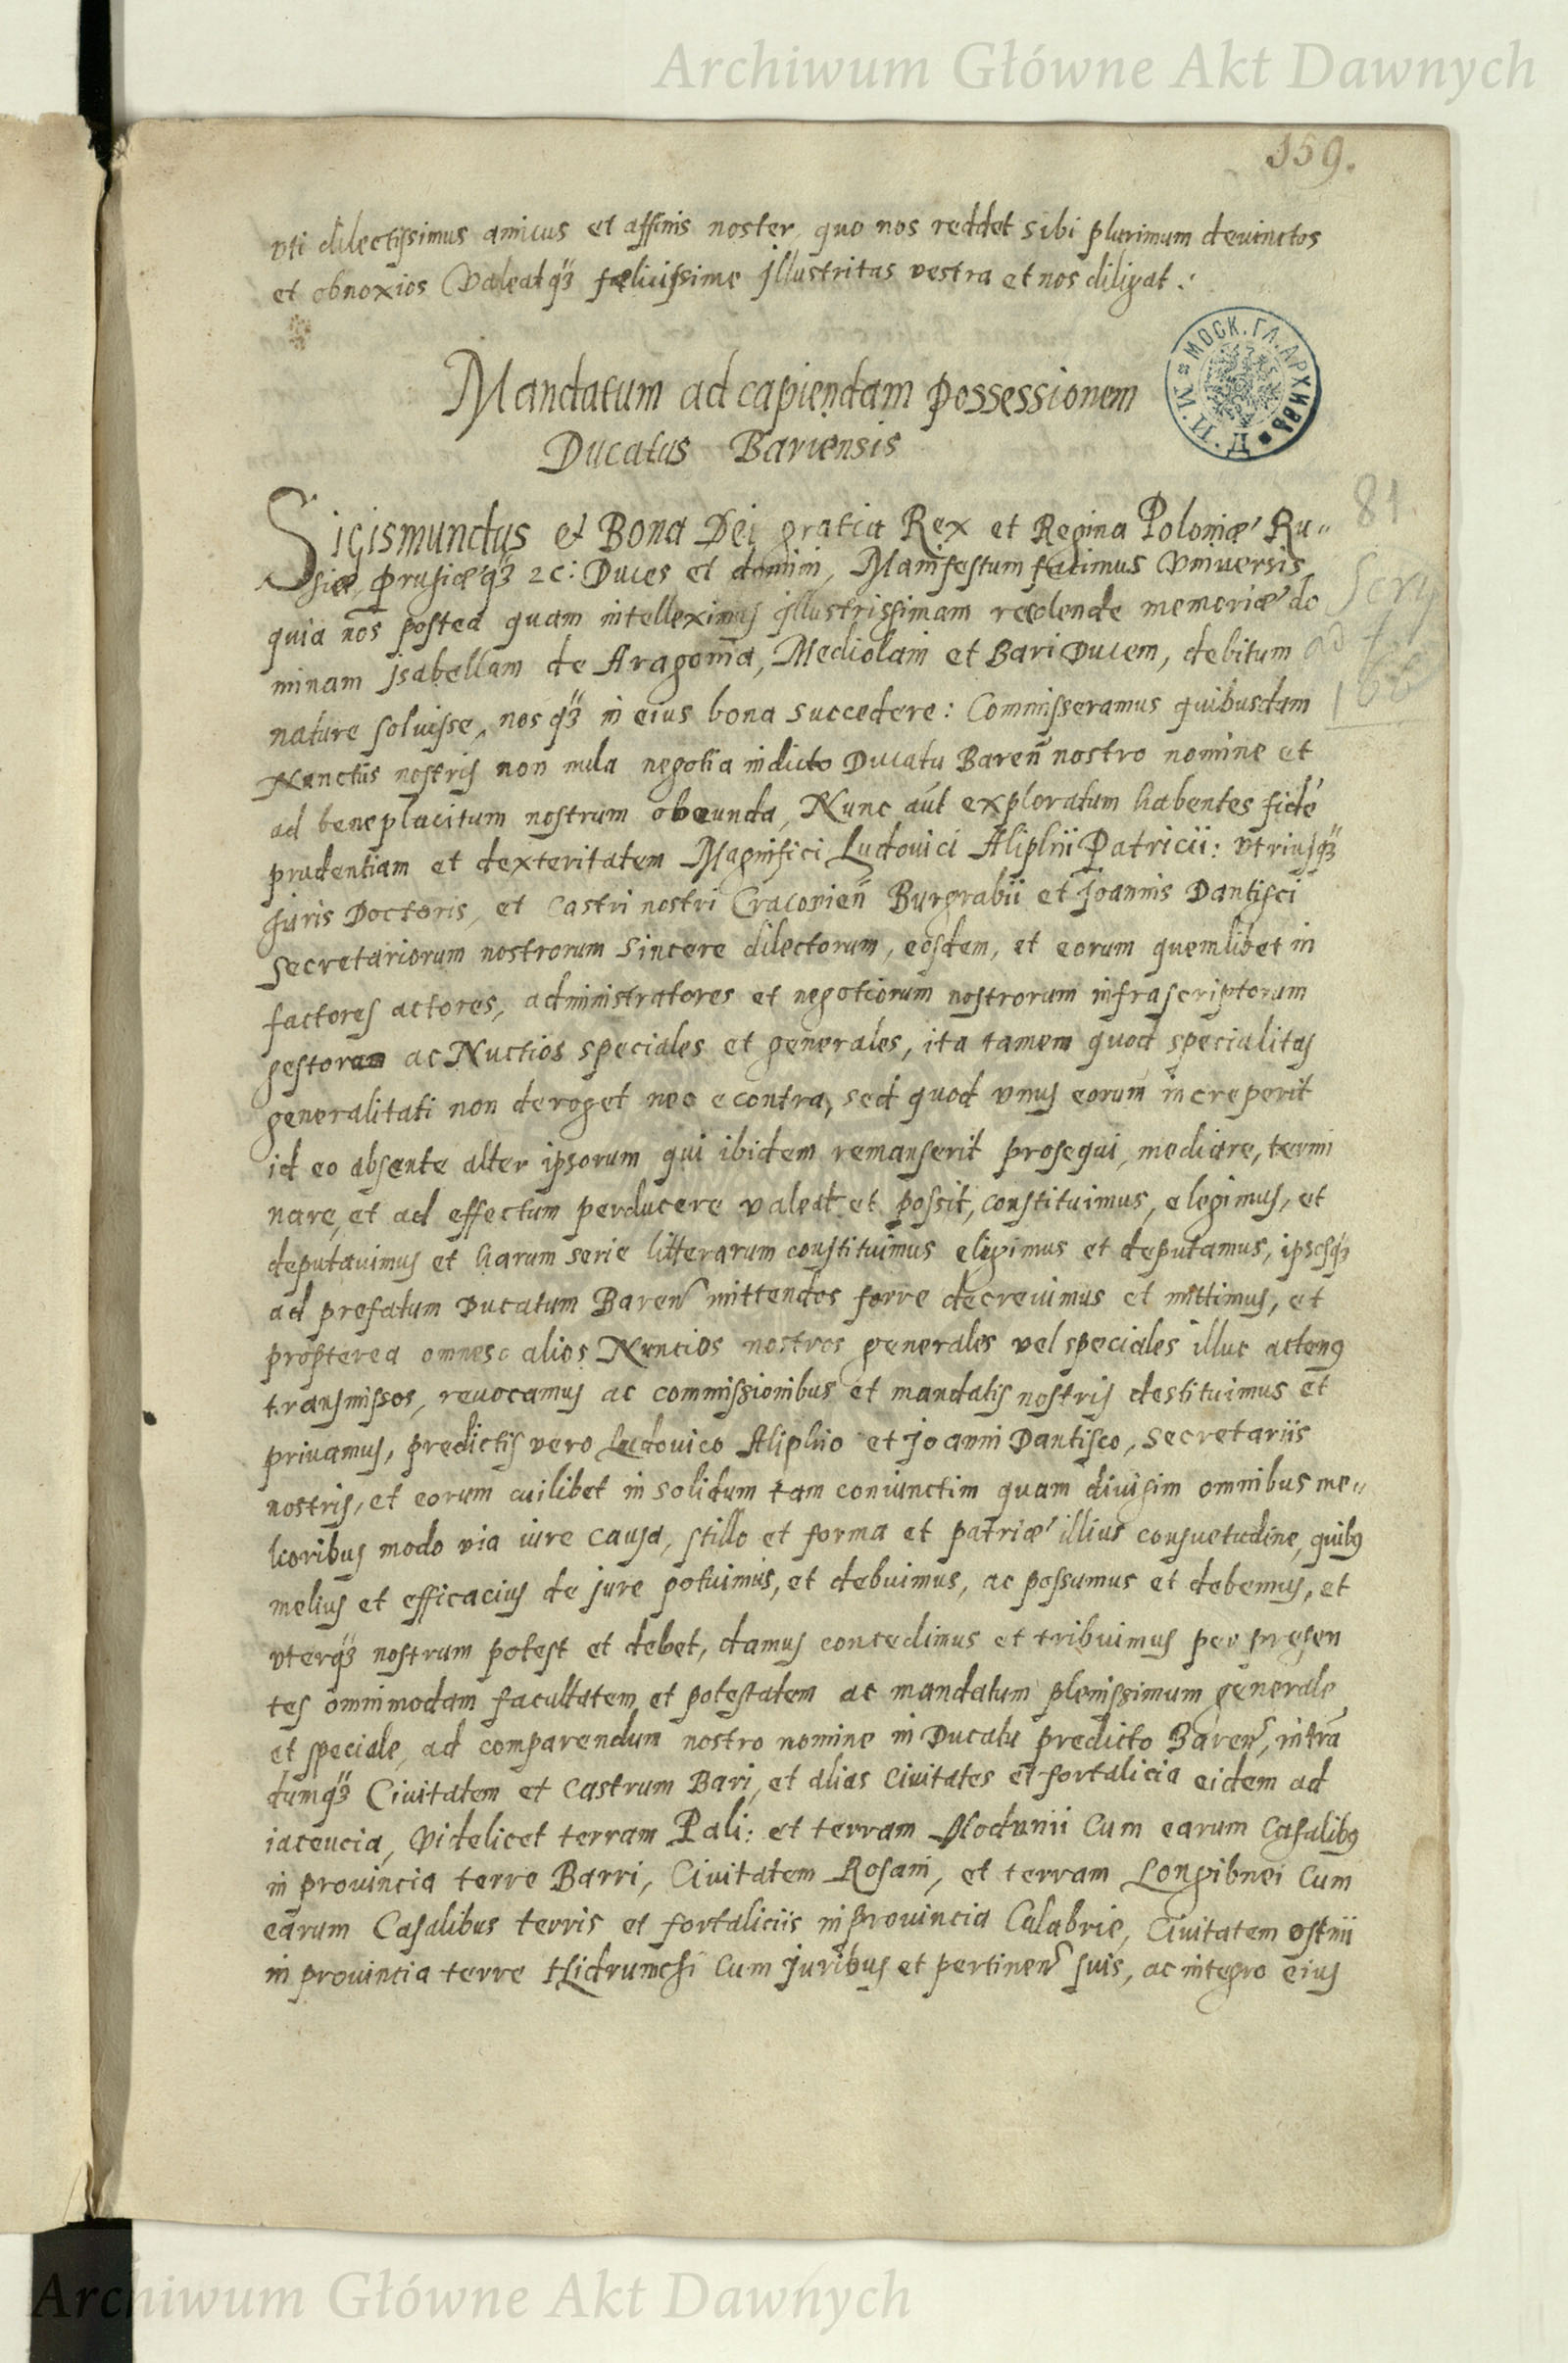 Archiwum Główne Akt Dawnych
159.
vti dilectissimus amicus et affinis noster quo nos reddet sibi plurimum deuinctos
et obnoxios Valeatq₃ fœlicissime Illustritas vestra et nos diligat :
Mandatum ad capiendam possessionem
Ducatus Bariensis
Д.П.И.К * МОСК. ГЛ. АРХИВЪ *
81
Sigismundus et Bona Dei gratia Rex et Regina Poloniæ Ru„
siæ, prusiæq₃ 2c: Duces et domini, Manifestum facimus Vniuersis,
quia nos postea quam intelleximus illustrissimam recolende memoriæ do
minam Isabellam de Aragonia, Mediolani et Bari Ducem, debitum
nature soluisse, nosq₃ in eius bona succedere: Commisseramus quibusdam
Nunctiis nostris non nulla negotia in dicto Ducatu Bareñ nostro nomine et
ad beneplacitum nostrum obeunda, Nunc aūt exploratum habentes fidē
prudentiam et dexteritatem Magnifici Ludouici Aliphii Patricii: vtriusq₃
Juris Doctoris, et Castri nostri Cracovieñ Burgrabii et Joannis Dantisci
Secretariorum nostrorum Sincere dilectorum, eosdem, et eorum quemlibet in
factores actores, administratores et negotiorum nostrorum infrascriptorum
gestores ac Nuctios speciales et generales, ita tamen quod specialitas
generalitati non deroget nec econtra, sed quod vnus eorum increperit
id eo absente alter ipsorum qui ibidem remanserit prosequi, mediare, termi
nare, et ad effectum perducere valeat et possit, constituimus, elegimus, et
deputauimus et harum serie litterarum constituimus eligimus et deputamus, ipsosq₃
ad prefatum Ducatum Bareñ mittendos forre decreuimus et mittimus, et
propterea omnes alios Nuncios nostros generales vel speciales illuc actenꝰ
transmissos, reuocamus ac commissionibus et mandatis nostris destituimus et
priuamus, predictis vero Ludouico Aliphio et Joanni Dantisco, Secretariis
nostris, et eorum cuilibet in solidum tam coniunctim quam diuisim omnibus me„
lioribus modo via iure causa, stillo et forma et patriæ illius consuetudine, quibꝰ
melius et efficacius de jure potuimus, et debuimus, ac possumus et debemus, et
vterq₃ nostrum potest et debet, damus concedimus et tribuimus per presen
tes omnimodam facultatem et potestatem ac mandatum plenissimum generale
et speciale, ad comparendum nostro nomine in Ducatu predicto Bareñ, intra
dumq₃ Ciuitatem et Castrum Bari, et alias Ciuitates et fortalicia eidem ad
iacencia, Videlicet terram Pali: et terram Modunii Cum earum Casalibꝰ
in prouincia terre Barri, Ciuitatem Rosani, et terram Longibuci Cum
earum Casalibus terris et fortaliciis in prouincia Calabrie, Ciuitatem ostnii
in prouincia terre Hidrumchi Cum Juribus et pertineñ suis, ac integro eius
Archiwum Główne Akt Dawnych